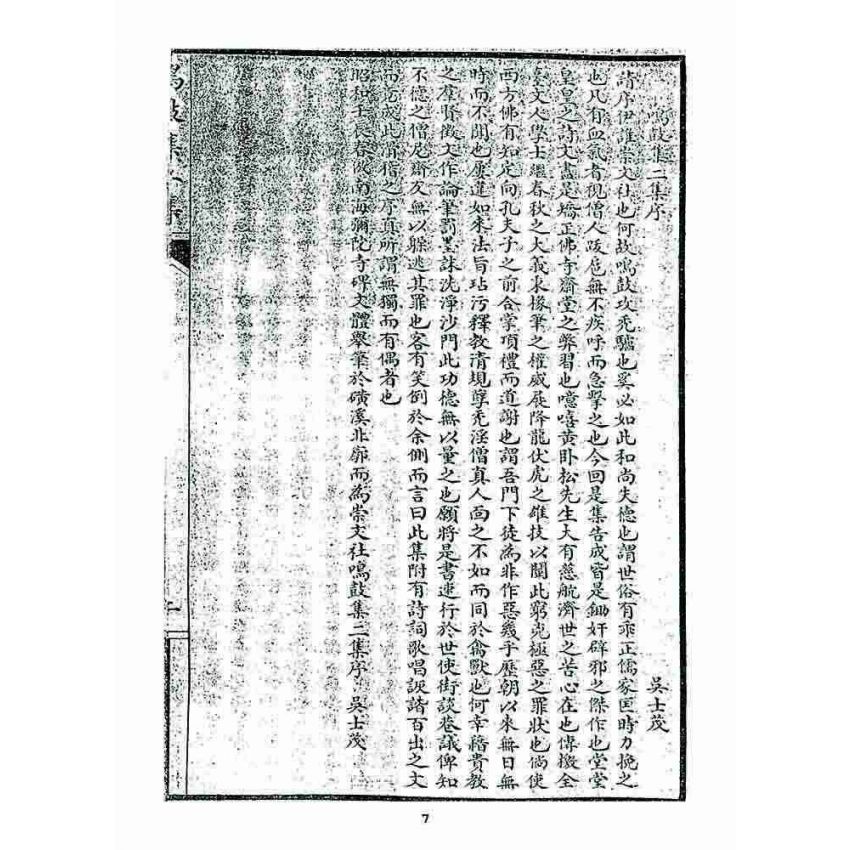 鳴鼓集二集序
吳士茂
請序伊誰崇文社也何故鳴鼓攻禿驢也奚必如此和尚失德也謂世俗有乖正儒家匡時力挽之
也凡有血氣者視僧人跋扈無不疾呼而急擊之也今回是集告成皆是鋤奸辟邪之傑作也堂堂
皇皇之詩文盡是矯正佛寺齋堂之弊習也噫嘻黃臥松先生大有慈航濟世之苦心在也傳檄全
臺文人學士繼春秋之大義秉椽筆之權威展降龍伏虎之雄技以闢此窮兇極惡之罪狀也倘使
西方佛有知定向孔夫子之前合掌頂禮而道謝也謂吾門下徒為非作惡幾乎歷朝以來無日無
時而不聞也屢違如來法旨玷污釋教清規孽禿淫僧真人面之不如而同於禽獸也何幸藉貴教
之群賢徵文作論筆罰墨誅洗淨沙門此功德無以量之也願將是書速行於世使街談巷議俾知
不德之僧尼齋友無以躲逃其罪也客有笑倒於余側而言曰此集附有詩詞歌唱詼諧百出之文
而竟成此滑稽之序真所謂無獨而有偶者也
昭和壬辰春倣南海彌陀寺碑文體舉筆於磺溪北廓而為崇文社鳴鼓集二集序　吳士茂
鳴鼓集　集序
7